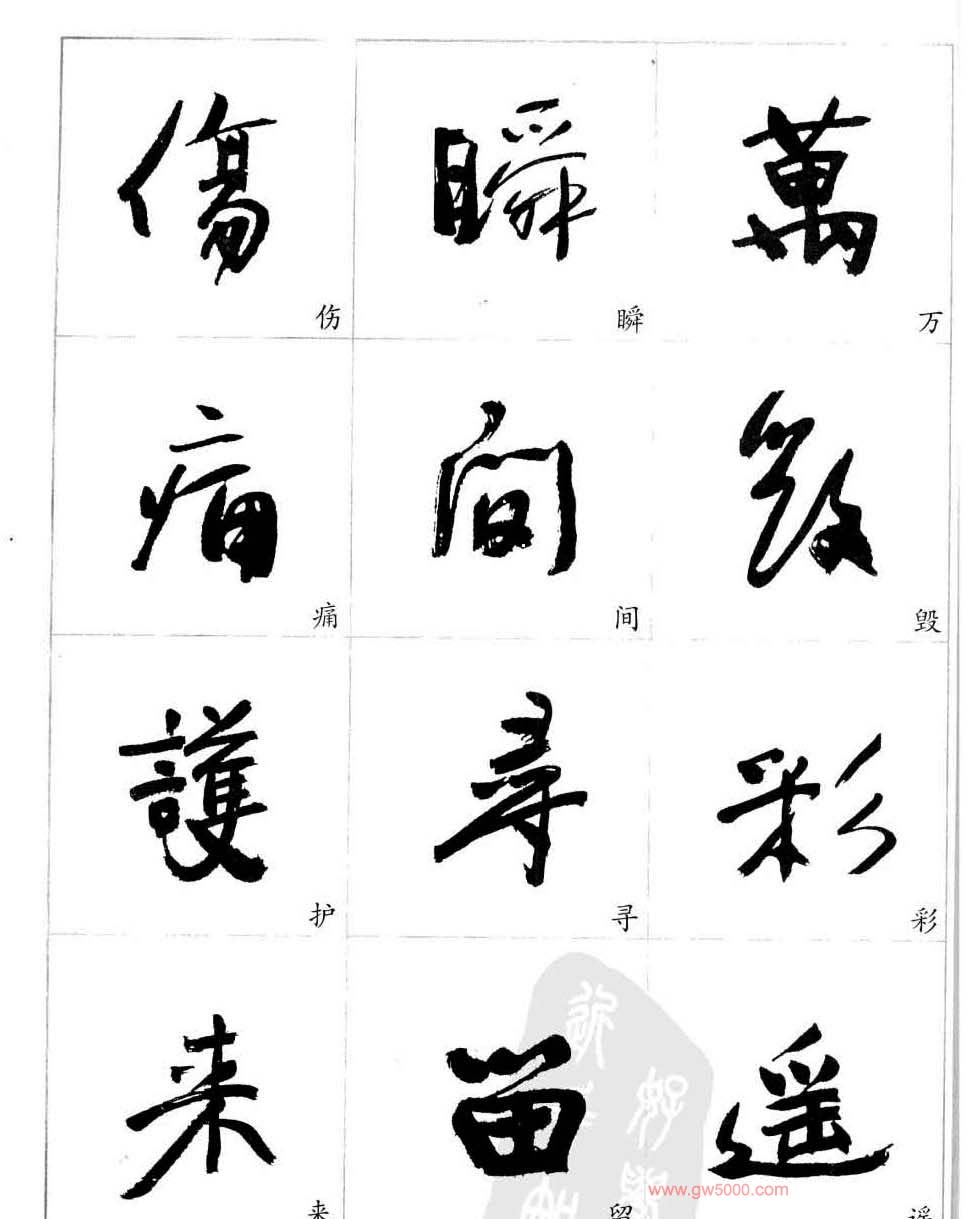 萬
万
毀
毁
彩
彩
遥
遥
瞬
瞬
間
间
尋
寻
留
留
傷
伤
痛
痛
護
护
来
来
www.gw5000.com